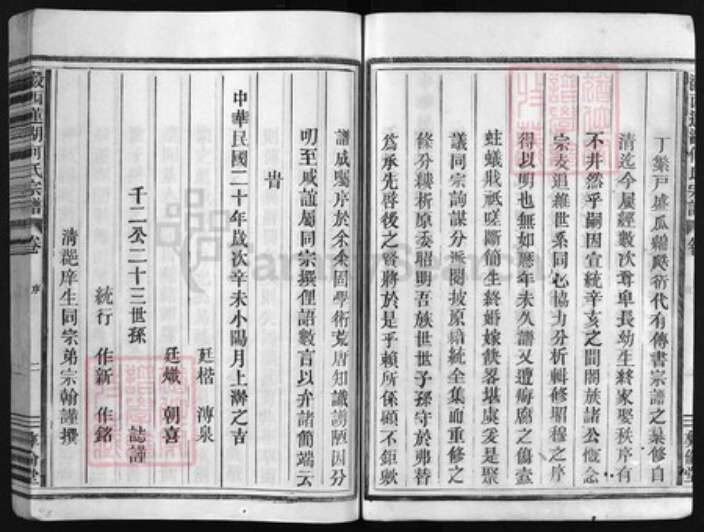 丁繁戸雄瓜綿
代有傳書宗譜之纂修自
清迄今屢經數次尊卑長幼生終家娶秩序有
不井然乎嗣因宣統辛亥之間閤族諸公慨念
宗支追維世系同心協力分析輯修昭穆之序
得以明也無如歷年未久譜又遭
蛀蟻戕
斷簡生終婚嫁
畧堪虞爰是聚
議同宗詢謀分派閱披原
統全集而重修之
修分縷析原委昭明吾族世世子孫守於弗替
為承先啓後之賢將於是乎賴所係顧不鉅歟
譜成囑序於余余固學術荒唐知識謭陋因分
叨至戚誼屬同宗撰俚語數言以弁諸簡端云
旹
中華民國二十年歲次辛未小陽月上澣之吉
千二公二十三世孫
廷楷 溥泉
廷熾 朝喜
統行 作新 作銘
誌謹
清邑庠生同宗弟宗翰謹撰
西蓮湖何氏宗譜
卷
序
一
FamilySearch